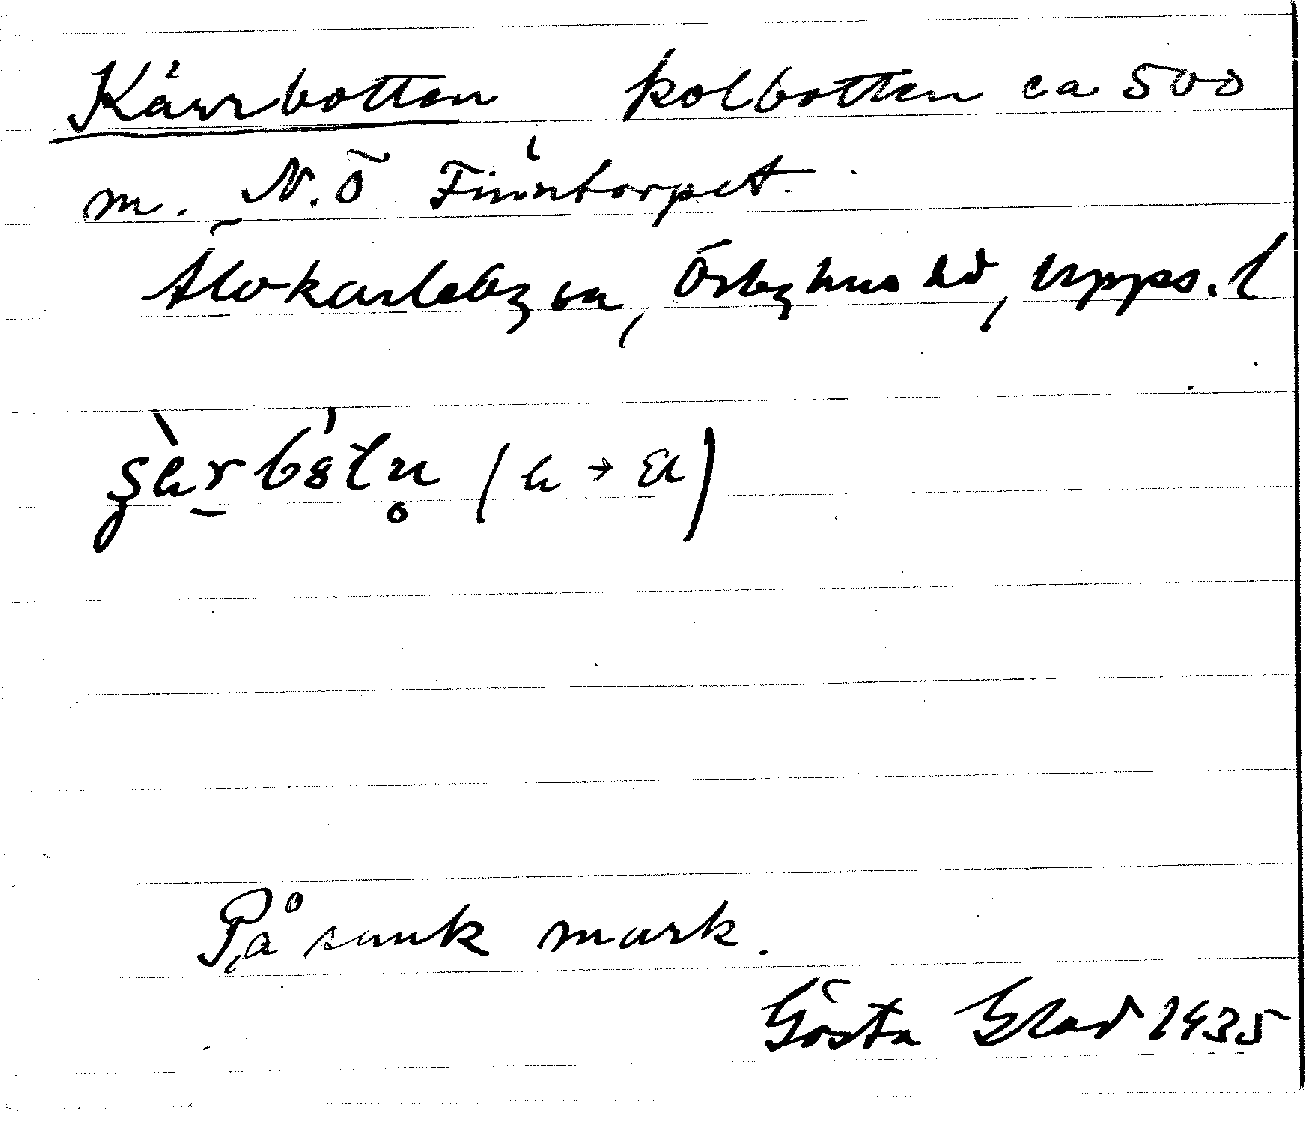 Kärrbotten kolbotten ca 500
m. N.Ö Finntorpet.
Älvkarleby sn, Örbyhus hd, Upps. l
På sank mark.
Gösta Glad 1935